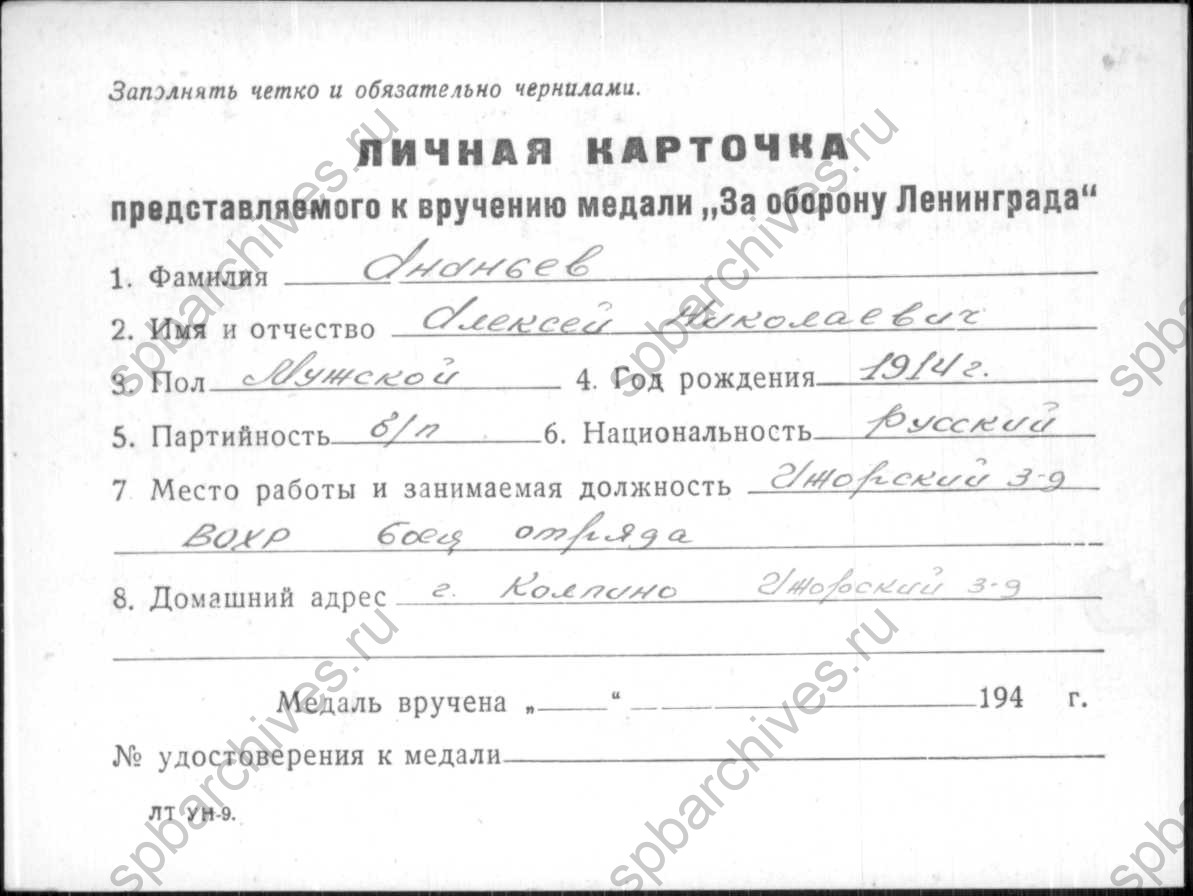 Заполнять четко и обязательно чернилами.
ЛИЧНАЯ КАРТОЧКА
представляемого к вручению медали „За оборону Ленинграда“
1. Фамилия Ананьев
2. Имя и отчество Алексей Николаевич
3. Пол Мужской 4. Год рождения 1914 г.
5. Партийность б/п 6. Национальность русский
7 Место работы и занимаемая должность Ижорский з-д
ВОХР боец отряда
8. Домашний адрес г. Колпино Ижорский з-д
Медаль вручена „ “ 194 г.
№ удостоверения к медали
ЛТ УН-9.
spbarchives.ru
spbarchives.ru
spbarchives.ru
spbarchives.ru